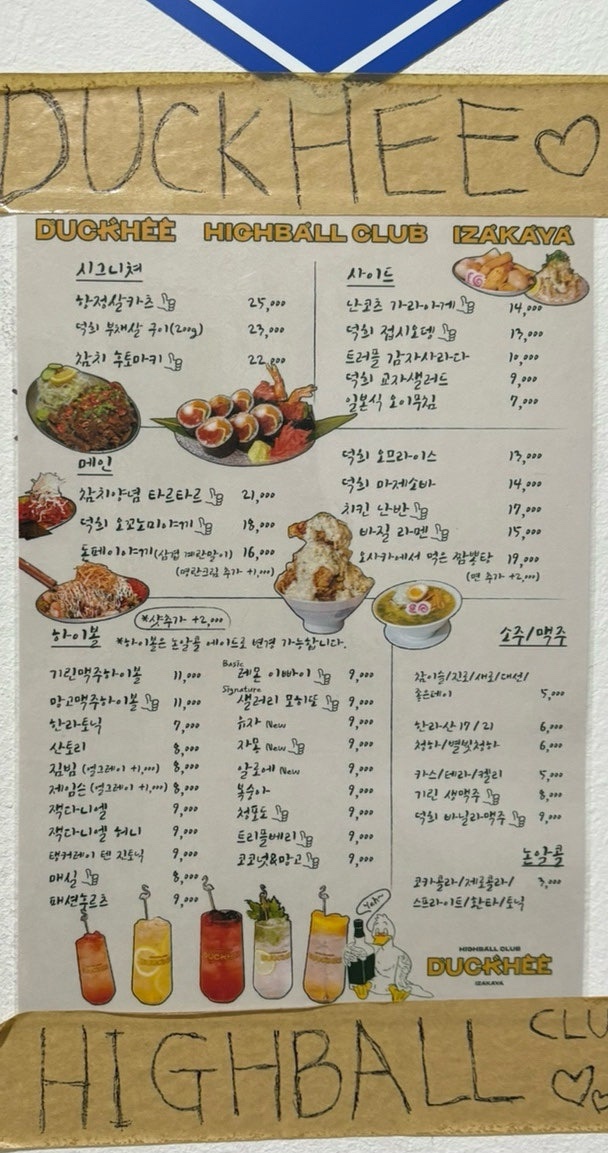 DUCKHEE♡
DUCKHEE HIGHBALL CLUB IZAKAYA
시그니쳐
항정살카츠 25,000
덕희 부채살 구이(200g) 23,000
참치 후토마키 22,000
사이드
난코츠 가라아게 14,000
덕희 접시오뎅 13,000
트러플 감자사라다 10,000
덕희 교자샐러드 9,000
일본식 오이무침 7,000
메인
참치양념 타르타르 21,000
덕희 오꼬노미야끼 18,000
돈페이야끼(삼겹 계란말이) 16,000
(명란크림 추가 +1,000)
덕희 오므라이스 13,000
덕희 마제소바 14,000
치킨 난반 17,000
바질 라멘 15,000
오사카에서 먹은 짬뽕탕 19,000
(면 추가 +2,000)
하이볼
*샷추가 +2,000
*하이볼은 논알콜 에이드로 변경 가능합니다.
기린맥주하이볼 11,000
망고맥주하이볼 11,000
한라토닉 7,000
산토리 8,000
짐빔 (얼그레이 +1,000) 8,000
제임슨 (얼그레이 +1,000) 8,000
잭다니엘 9,000
잭다니엘 허니 9,000
탱커레이 텐 진토닉 9,000
매실 8,000
패션후르츠 9,000
Basic
레몬 이빠이 9,000
Signature
샐러리 모히또 9,000
유자 New 9,000
자몽 New 9,000
알로에 New 9,000
복숭아 9,000
청포도 9,000
트리플베리 9,000
코코넛&망고 9,000
소주/맥주
참이슬/진로/새로/대선/
좋은데이 5,000
한라산 17/21 6,000
청하/별빛청하 6,000
카스/테라/켈리 5,000
기린 생맥주 8,000
덕희 바닐라맥주 9,000
논알콜
코카콜라/제로콜라/ 3,000
스프라이트/환타/토닉
DUCKHEE
HIGHBALL CLUB
DUCKHEE
IZAKAYA
HIGHBALL CLU